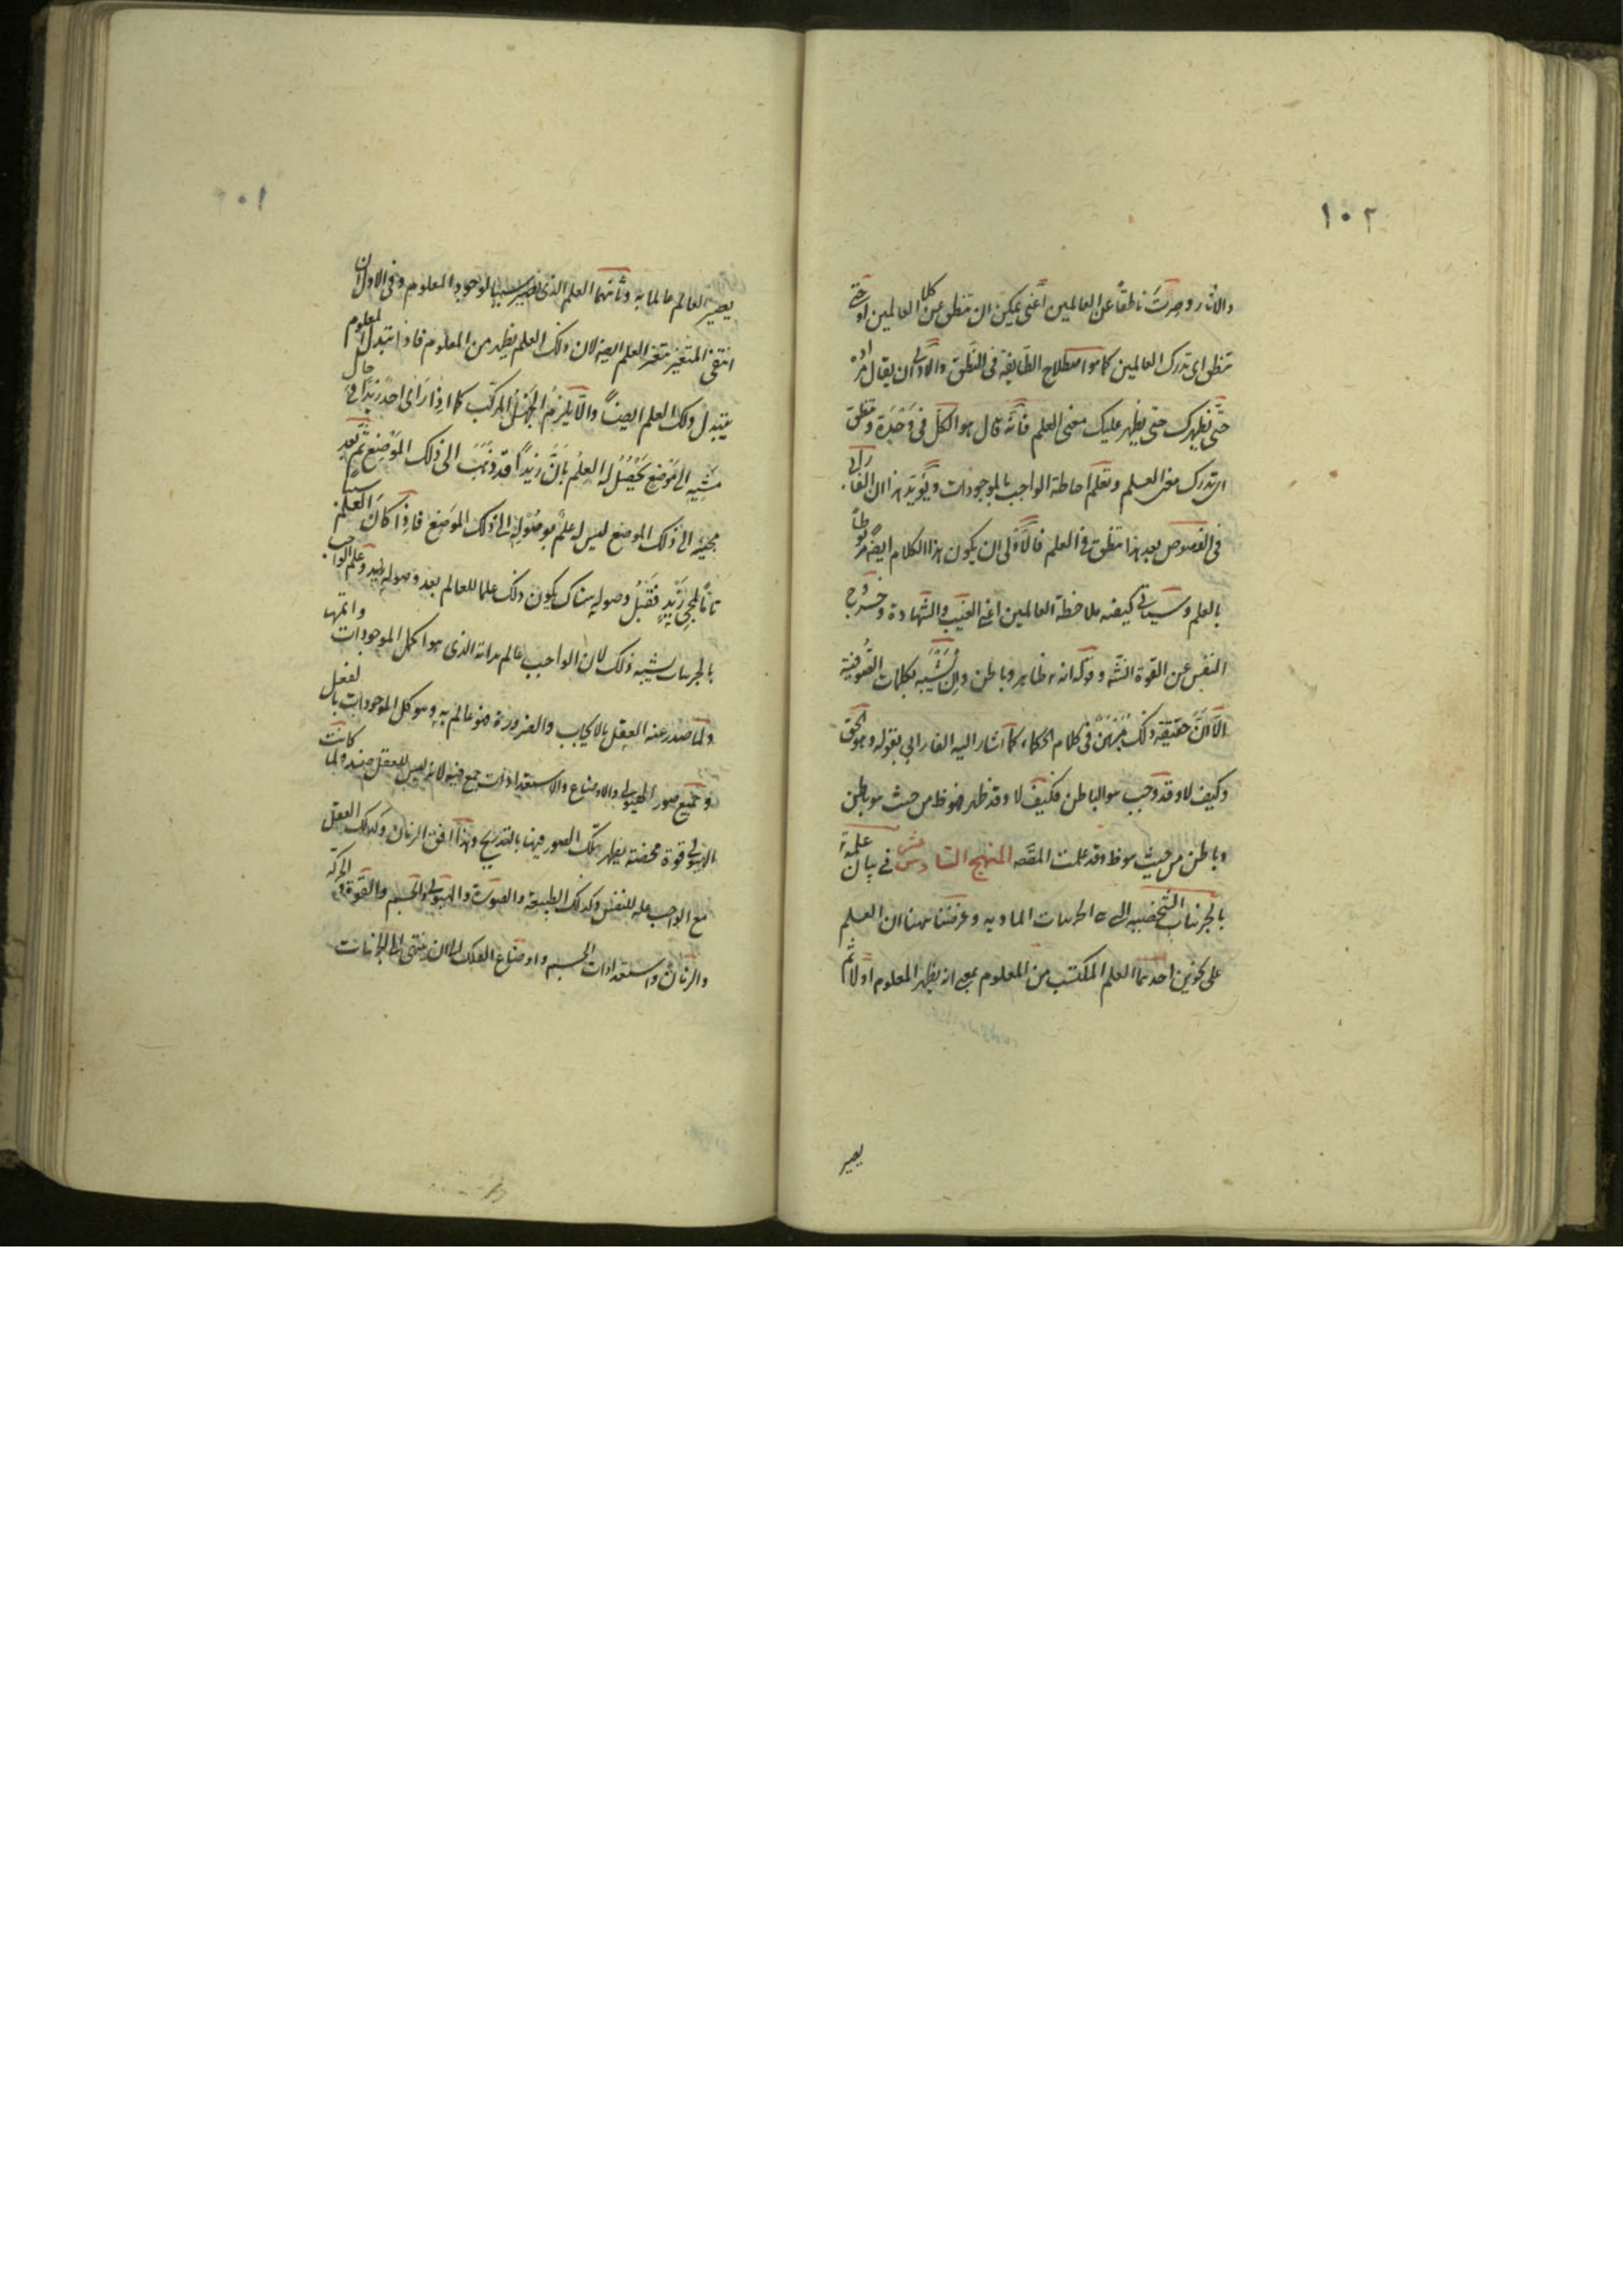 ١٠٢
والاثار وصرت ناطقاً عن العالمين اعنى يمكن ان تنطق عن كلا العالمين او حتى
تنطق اى تدرك العالمين كما هو اصطلاح الطايفة فى النطق والاولى ان يقال مراده
حتى يظهرك حتى يظهر عليك معنى العلم فانه قال هو الكل فى وحدة وتنطق
اى تدرك معنى العلم وتعلم احاطة الواجب بالموجودات ويؤيد هذا ان الفارابى
فى الفصوص بعد هذا تنطق فى العلم فالاولى ان يكون هذا الكلام ايضه مربوطاً
بالعلم وسياتى كيفيه ملاحظة العالمين اعنى الغيب والشهادة وخروج
النفس عن القوة وقوله انه ظاهر وباطن وان يشبه بكلمات الصوفية
الا ان حقيقة ذلك مبرهن فى كلام الحكماء كما اشار اليه الفارابى بقوله وهو الحق
وكيف لا وقد وجب هو الباطن فكيف لا وقد ظهر فهو ظ من حيث هو باطن
وباطن من حيث هو ظ وقد علمت المنهج السادس عشر فى بيان علمه
بالجزئيات الشخصيه اى الجزئيات الماديه وعرفت ههنا ان العلم
على نحوين احدهما العلم المكتسب من المعلوم بمعنى انه يظهر المعلوم اولا ثم
يصير
١٠١
يصير العالم عالما به وثانيهما العلم الذى يصير سببا لوجود المعلوم وفى الاول ان
انتفى المتغير تغير العلم ايضه لان ذلك العلم يظهر من المعلوم فاذا تبدل المعلوم
يتبدل ذلك العلم ايضاً والا يلزم الجهل المركب كما اذا راى احد زيداً فى حال
مشيه الى موضع يحصل له العلم بان زيداً قد ذهب الى ذلك الموضع ثم بعد
مجيئه الى ذلك الموضع ليس له علم بوصوله الى ذلك الموضع فاذا كان العلم سبباً
لمجئ زيد فقبل وصوله هناك يكون ذلك علما للعالم بعد وصوله وعلم الواجب
بالجزئيات يشبه ذلك لان الواجب عالم بذاته الذى هو اكمل الموجودات واتمها
ولما صدر عنه العقل بالايجاب والضرورة فهو عالم به وهو كل الموجودات بالفعل
وجميع صور الهيولى والاوضاع والاستعدادات جمع فيه لانه ليس للعقل ولما كانت
الهيولى قوة محضة يظهر تلك الصور فيها بالتدريج وهذا افق الزمان وكذلك العقل
مع الواجب علة للنفس وكذلك الطبيعة والصورة والهيولى والجسم والقوة الحركة
والزمان واستعدادات الجسم واوضاع الفلك الى ان ينتهى الى الجزئيات